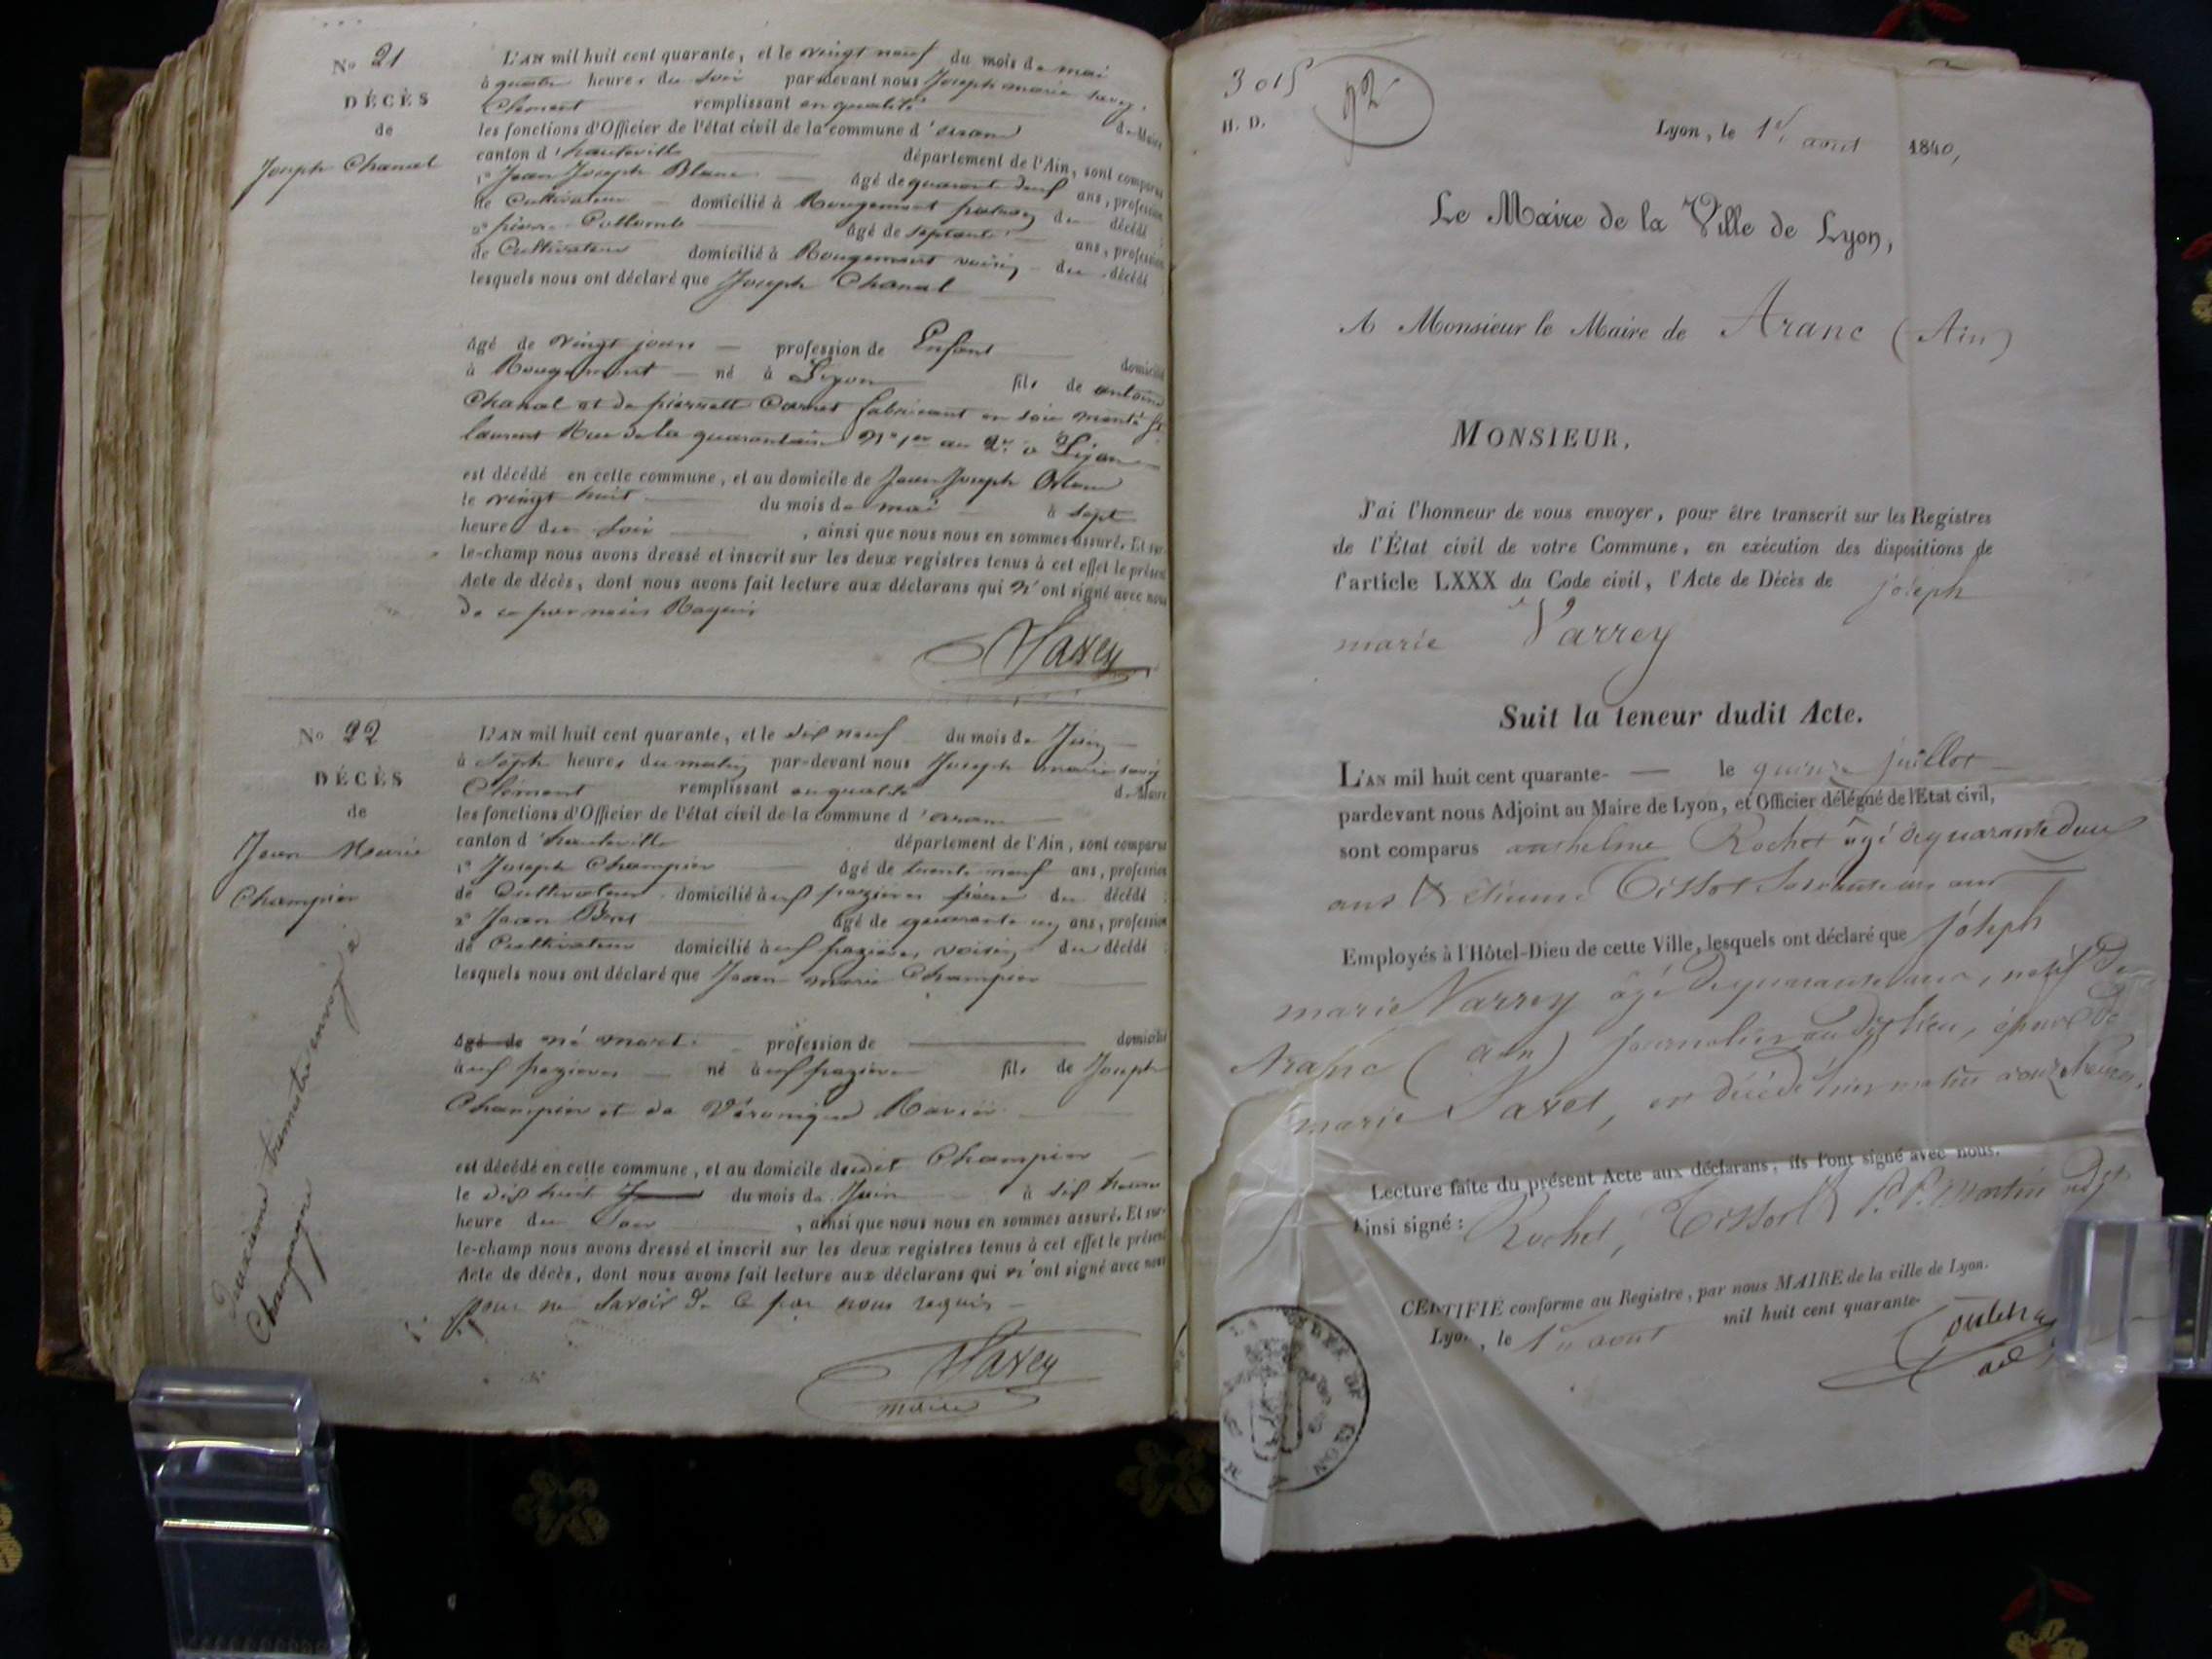 No 21
DÉCÈS
de
Joseph Chanal
L'AN mil huit cent quarante, et le vingt neuf du mois de mai
à quatre heures du soir par-devant nous Joseph marie savey
Clément remplissant en qualité de Maire
les fonctions d'Officier de l'état civil de la commune d'aranc
canton d'hauteville département de l'Ain, sont comparus
1° Jean Joseph Blanc âgé de quarante neuf ans, profession
de Cultivateur domicilié à Rougemont du décédé ;
2° pierre Collomb âgé de septante ans, profession
de Cultivateur domicilié à Rougemont voisin du décédé
lesquels nous ont déclaré que Joseph Chanal
âgé de vingt jours profession de Enfant domicilié
à Rougemont né à Lyon fils de antoine
Chanal et de pierrette Carnet fabricant en soie monté St
laurent Rue de la quarantaine N° 1er au 2e à Lyon
est décédé en cette commune, et au domicile de Jean Joseph Blanc
le vingt huit du mois de mai à sept
heures du soir , ainsi que nous nous en sommes assuré. Et sur-
le-champ nous avons dressé et inscrit sur les deux registres tenus à cet effet le présent
Acte de décès, dont nous avons fait lecture aux déclarans qui n'ont signé avec nous
de ce par nous Requis
Savey
No 22
DÉCÈS
de
Jean Marie
Champier
L'AN mil huit cent quarante, et le dix neuf du mois de Juin
à Sept heures du matin par-devant nous Joseph marie savey
Clément remplissant en qualité de Maire
les fonctions d'Officier de l'état civil de la commune d'aranc
canton d'hauteville département de l'Ain, sont comparus
1° Joseph Champier âgé de trente neuf ans, profession
de Cultivateur domicilié à du décédé ;
2° Jean âgé de quarante un ans, profession
de Cultivateur domicilié à voisin du décédé
lesquels nous ont déclaré que Jean marie Champier
âgé de né mort profession de domicilié
né fils de Joseph
Champier et de Véronique Ravier
est décédé en cette commune, et au domicile dudit Champier
le dix huit du mois de Juin à dix heures
heure du Soir , ainsi que nous nous en sommes assuré. Et sur-
le-champ nous avons dressé et inscrit sur les deux registres tenus à cet effet le présent
Acte de décès, dont nous avons fait lecture aux déclarans qui n'ont signé avec nous
pour ne Savoir de ce par nous requis
Savey
maire
Deuxième trimestre envoyé à
Champagne
3015
92
H. D.
Lyon, le 1er aout 1840,
Le Maire de la Ville de Lyon,
A Monsieur le Maire de Aranc (Ain)
MONSIEUR,
J'ai l'honneur de vous envoyer, pour être transcrit sur les Registres
de l'État civil de votre Commune, en exécution des dispositions de
l'article LXXX du Code civil, l'Acte de Décès de joseph
marie Varrey
Suit la teneur dudit Acte.
L'AN mil huit cent quarante- le quinze juillet
pardevant nous Adjoint au Maire de Lyon, et Officier délégué de l'État civil,
sont comparus anthelme Rochet âgé de quarante deux
ans & étienne Tissot Soixante six ans
Employés à l'Hôtel-Dieu de cette Ville, lesquels ont déclaré que joseph
marie Varrey âgé de quarante ans, natif de
Aranc (ain) journalier audit lieu, époux de
marie Savet, est décédé hier matin à onze heures.
Lecture faite du présent Acte aux déclarans, ils l'ont signé avec nous.
Ainsi signé : Rochet, Tissot & P.P. Martin adjt
CERTIFIÉ conforme au Registre, par nous MAIRE de la ville de Lyon.
Lyon, le 1er aout mil huit cent quarante-